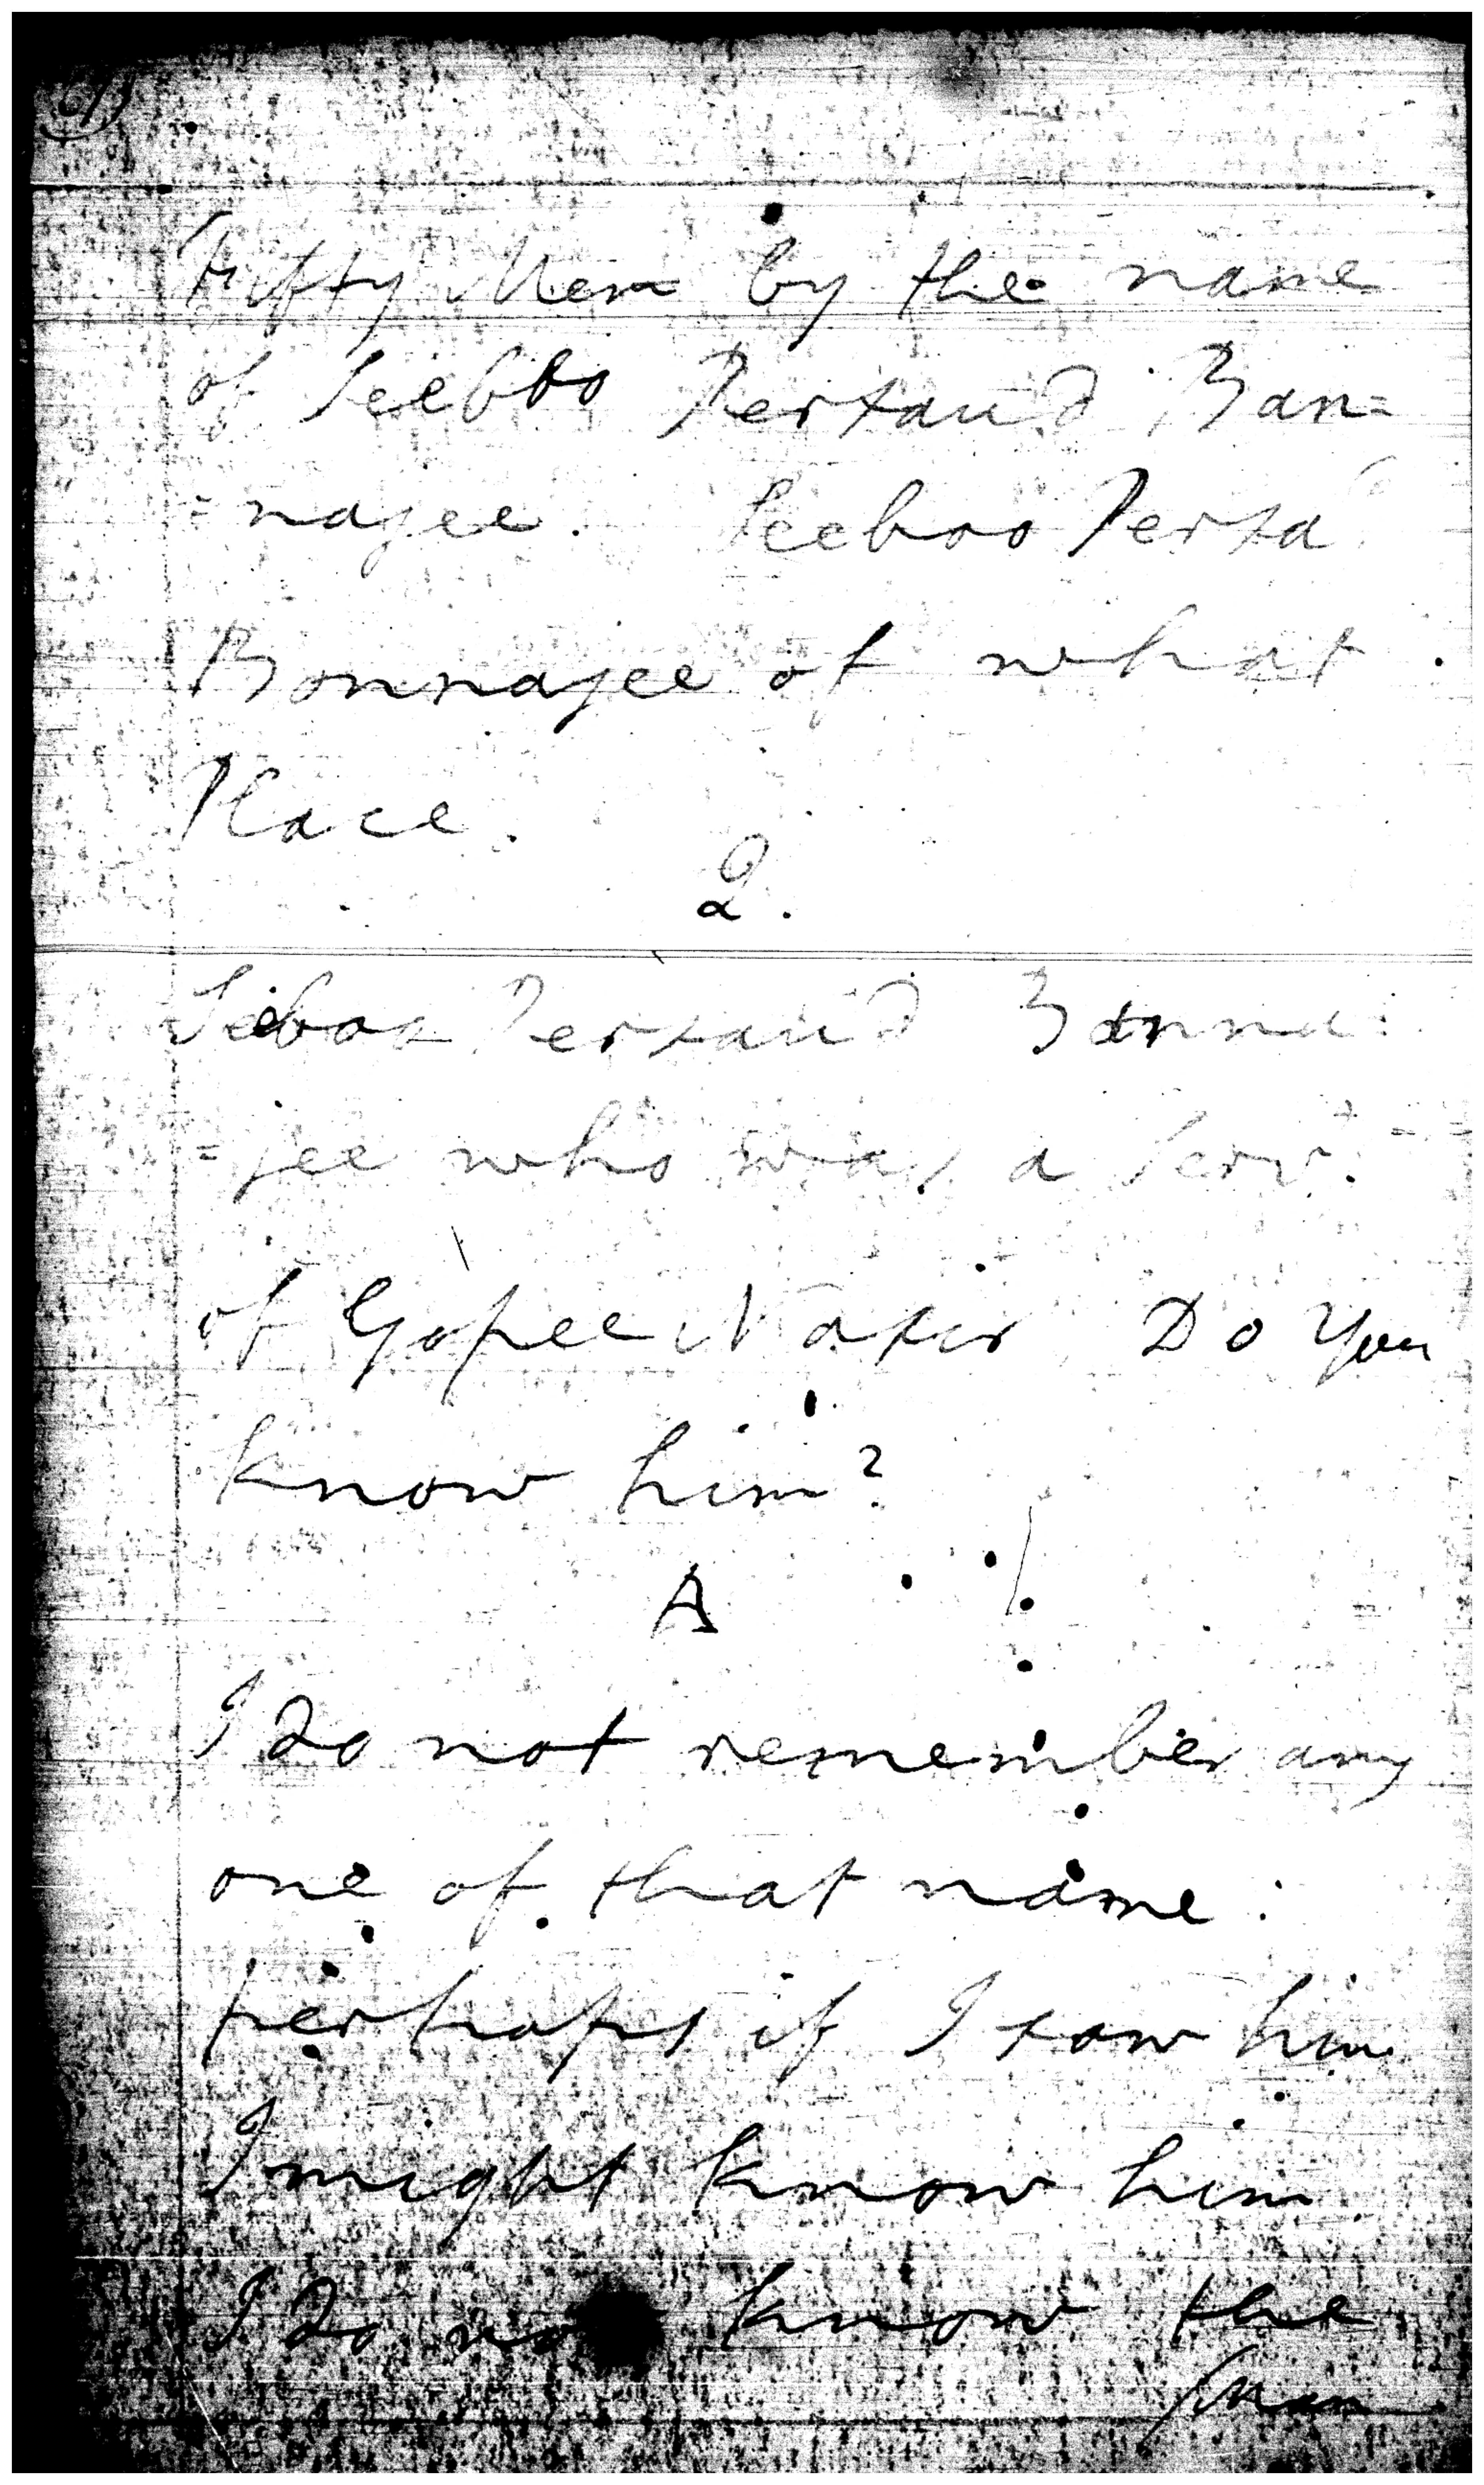 Fifty Men by the name
of Seeboo Persaud Ban=
=najee. Seeboo Persa
Bonnajee of what
Place.
Q.
Seboo Persaud Banna=
=jee who was a Servt.
of Gopee Nazir Do You
know him?
A
I do not remember any
one of that name:
perhaps if I saw him
I might know him
I do not know the
Man